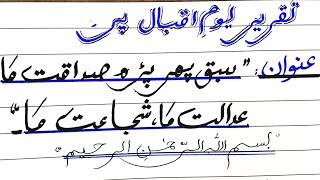 تقریر یوم اقبال پر
عنوان: "سبق پھر پڑھ صداقت کا
عدالت کا، شجاعت کا۔"
بسم اللہ الرحمٰن الرحیم